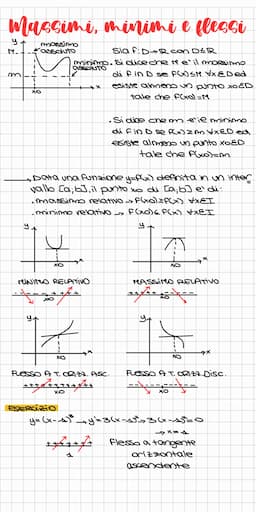 Massimi, minimi e flessi
y
massimo
assoluto
M
minimo
assoluto
m
x0
x
Sia f: D→R con D⊆R
. Si dice che M e' il massimo
di f in D se f(x)≤M ∀x∈D ed
esiste almeno un punto x0∈D
tale che f(x0)=M
. Si dice che m e' il minimo
di f in D se f(x)≥m ∀x∈D ed
esiste almeno un punto x0∈D
tale che f(x0)=m
→ Data una funzione y=f(x) definita in un inter
vallo [a,b], il punto x0 di [a,b] e' di:
. massimo relativo → f(x0)≥f(x) ∀x∈I
. minimo relativo → f(x0)≤f(x) ∀x∈I
y
x
x0
y
x
x0
MINIMO RELATIVO
MASSIMO RELATIVO
---- ++++
x0
++++ ----
x0
y
x
x0
y
x
x0
FLESSO A T. ORIZZ. ASC.
FLESSO A T. ORIZZ. DISC.
++++++++++
x0
----------
x0
ESERCIZIO
y=(x-1)³ → y'=3(x-1)² → 3(x-1)²=0
→ x=1
++++++++
1
Flesso a tangente
orizzontale
ascendente